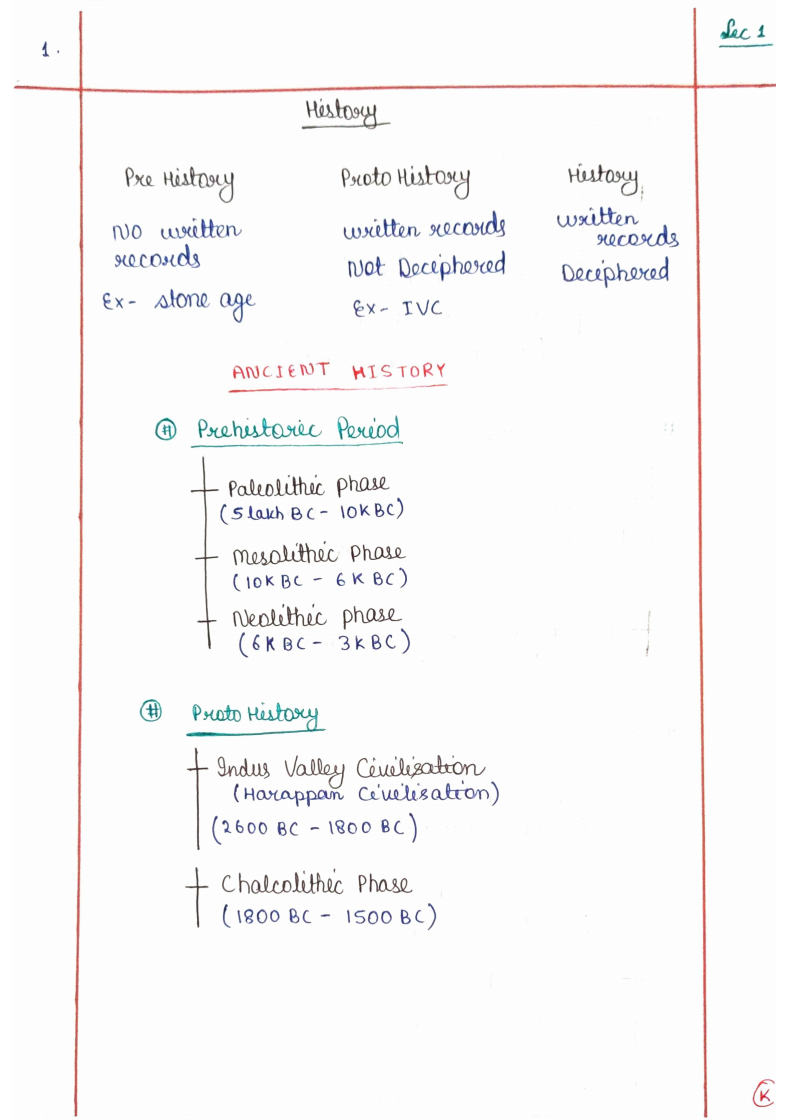 1.
Lec 1
History
Pre History
Proto History
History
No written
records
Ex- stone age
written records
Not Deciphered
Ex- IVC
written
records
Deciphered
ANCIENT HISTORY
# Prehistoric Period
Paleolithic phase
(5 lakh BC - 10K BC)
Mesolithic Phase
(10K BC - 6K BC)
Neolithic phase
(6K BC - 3K BC)
# Proto History
Indus Valley Civilisation
(Harappan Civilisation)
(2600 BC - 1800 BC)
Chalcolithic Phase
(1800 BC - 1500 BC)
K